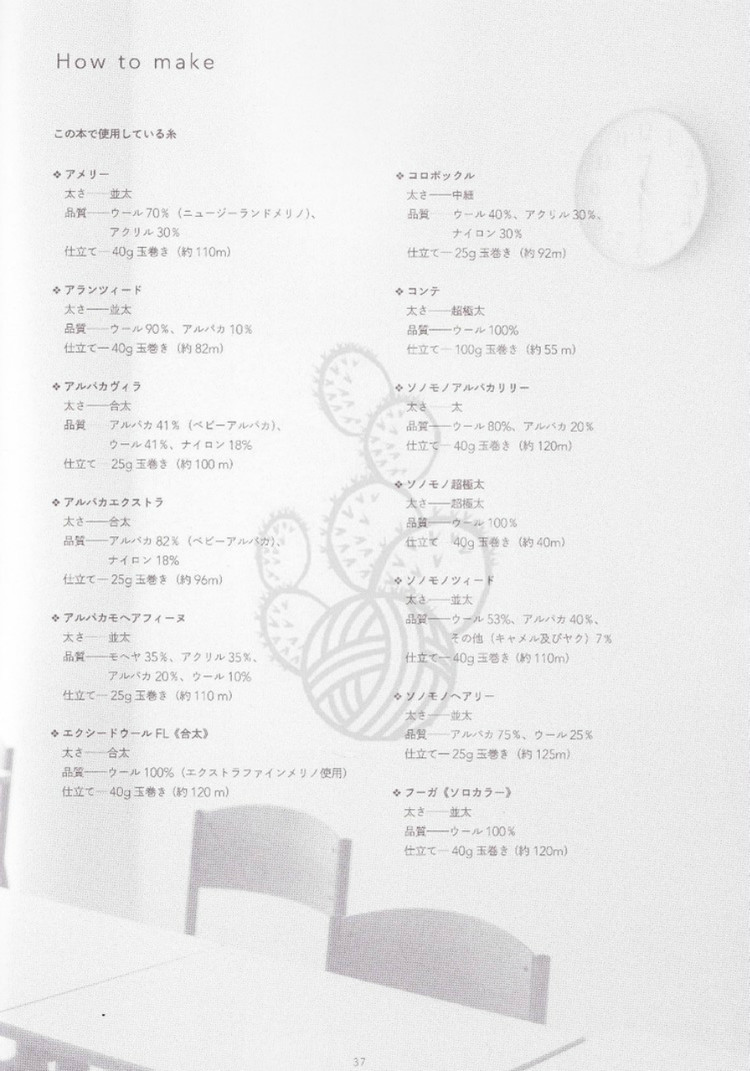 How to make
この本で使用している糸
❖ アメリー
太さ──並太
品質──ウール 70%（ニュージーランドメリノ）、
アクリル 30%
仕立て─ 40g 玉巻き（約 110m）
❖ アランツィード
太さ──並太
品質──ウール 90%、アルパカ 10%
仕立て─ 40g 玉巻き（約 82m）
❖ アルパカヴィラ
太さ──合太
品質──アルパカ 41%（ベビーアルパカ）、
ウール 41%、ナイロン 18%
仕立て─ 25g 玉巻き（約 100 m）
❖ アルパカエクストラ
太さ──合太
品質──アルパカ 82%（ベビーアルパカ）、
ナイロン 18%
仕立て─ 25g 玉巻き（約 96m）
❖ アルパカモヘアフィーヌ
太さ──並太
品質──モヘヤ 35%、アクリル 35%、
アルパカ 20%、ウール 10%
仕立て─ 25g 玉巻き（約 110 m）
❖ エクシードウール FL《合太》
太さ──合太
品質──ウール 100%（エクストラファインメリノ使用）
仕立て─ 40g 玉巻き（約 120 m）
❖ コロポックル
太さ──中細
品質──ウール 40%、アクリル 30%、
ナイロン 30%
仕立て─ 25g 玉巻き（約 92m）
❖ コンテ
太さ──超極太
品質──ウール 100%
仕立て─ 100g 玉巻き（約 55 m）
❖ ソノモノアルパカリリー
太さ──太
品質──ウール 80%、アルパカ 20%
仕立て─ 40g 玉巻き（約 120m）
❖ ソノモノ超極太
太さ──超極太
品質──ウール 100%
仕立て─ 40g 玉巻き（約 40m）
❖ ソノモノツィード
太さ──並太
品質──ウール 53%、アルパカ 40%、
その他（キャメル及びヤク）7%
仕立て─ 40g 玉巻き（約 110m）
❖ ソノモノヘアリー
太さ──並太
品質──アルパカ 75%、ウール 25%
仕立て─ 25g 玉巻き（約 125m）
❖ フーガ《ソロカラー》
太さ──並太
品質──ウール 100%
仕立て─ 40g 玉巻き（約 120m）
37